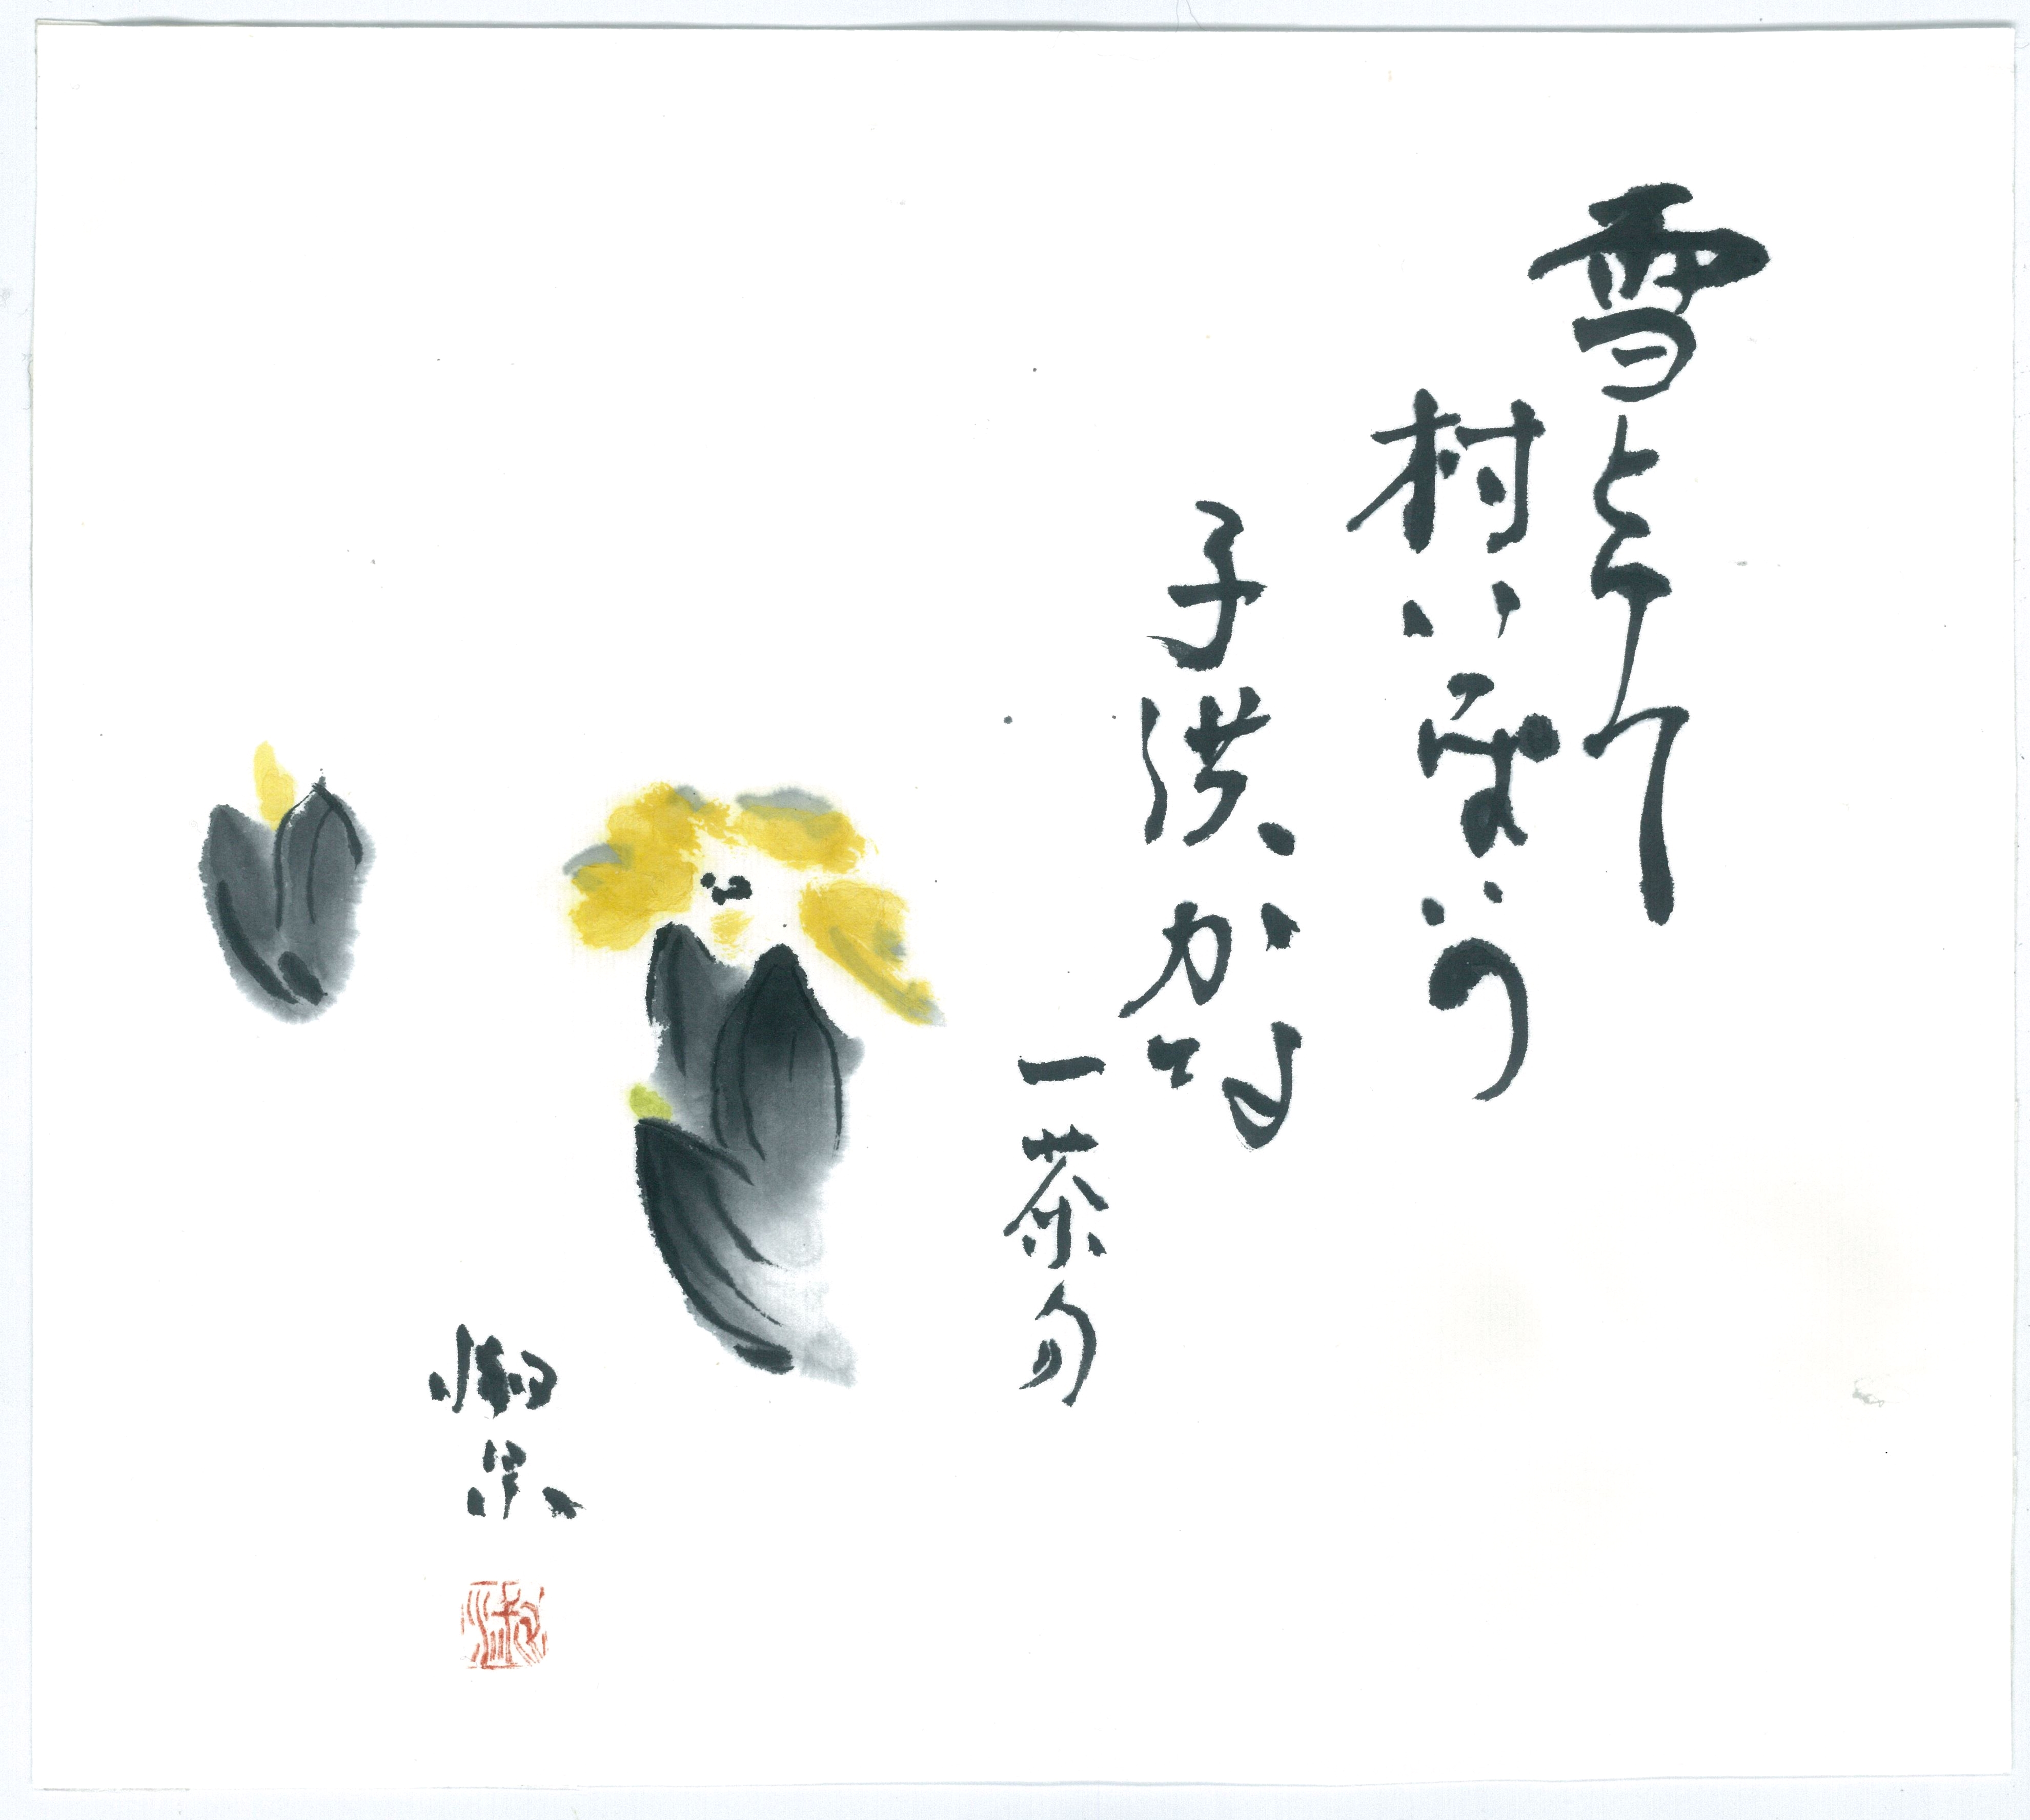 雪とけて
村いっぱいの
子供かな
一茶句